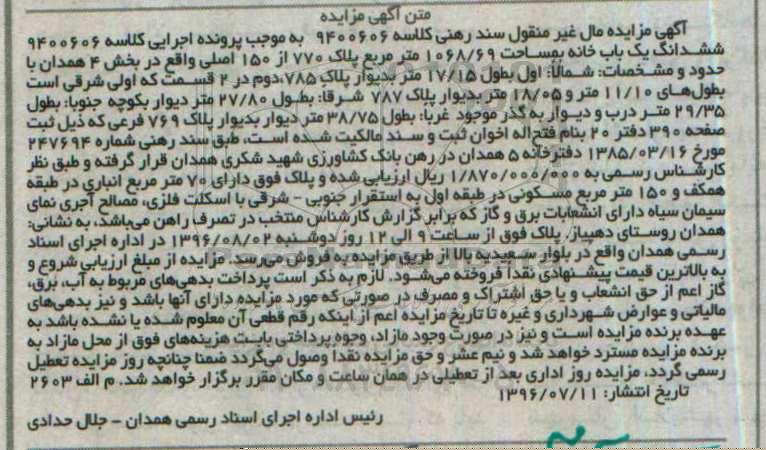 متن آگهی مزایده
آگهی مزایده مال غیر منقول سند رهنی کلاسه ۹۴۰۰۶۰۶ به موجب پرونده اجرایی کلاسه ۹۴۰۰۶۰۶
ششدانگ یک باب خانه بمساحت ۱۰۶۸/۶۹ متر مربع پلاک ۷۷۰ از ۱۵۰ اصلی واقع در بخش ۴ همدان با
حدود و مشخصات: شمالاً: اول بطول ۱۷/۱۵ متر بدیوار پلاک ۷۸۵،دوم در ۲ قسمت که اولی شرقی است
بطول‌های ۱۱/۱۰ متر و ۱۸/۰۵ متر بدیوار پلاک ۷۸۷ شرقا: بطول ۲۷/۸۰ متر دیوار بکوچه جنوبا: بطول
۲۹/۳۵ متر درب و دیوار به گذر موجود غربا: بطول ۳۸/۷۵ متر دیوار بدیوار پلاک ۷۶۹ فرعی که ذیل ثبت
صفحه ۳۹۰ دفتر ۲۰ بنام فتح‌اله اخوان ثبت و سند مالکیت شده است، طبق سند رهنی شماره ۲۴۷۶۹۴
مورخ ۱۳۸۵/۰۳/۱۶ دفترخانه ۵ همدان در رهن بانک کشاورزی شهید شکری همدان قرار گرفته و طبق نظر
کارشناس رسمی به ۱/۸۷۰/۰۰۰/۰۰۰ ریال ارزیابی شده و پلاک فوق دارای ۷۰ متر مربع انباری در طبقه
همکف و ۱۵۰ متر مربع مسکونی در طبقه اول به استقرار جنوبی - شرقی با اسکلت فلزی، مصالح آجری نمای
سیمان سیاه دارای انشعابات برق و گاز که برابر گزارش کارشناس منتخب در تصرف راهن می‌باشد، به نشانی:
همدان روستای دهپیاز. پلاک فوق از ساعت ۹ الی ۱۲ روز دوشنبه ۱۳۹۶/۰۸/۰۲ در اداره اجرای اسناد
رسمی همدان واقع در بلوار سعیدیه بالا از طریق مزایده به فروش می‌رسد. مزایده از مبلغ ارزیابی شروع و
به بالاترین قیمت پیشنهادی نقدا فروخته می‌شود. لازم به ذکر است پرداخت بدهی‌های مربوط به آب، برق،
گاز اعم از حق انشعاب و یا حق اشتراک و مصرف در صورتی که مورد مزایده دارای آنها باشد و نیز بدهی‌های
مالیاتی و عوارض شهرداری و غیره تا تاریخ مزایده اعم از اینکه رقم قطعی آن معلوم شده یا نشده باشد به
عهده برنده مزایده است و نیز در صورت وجود مازاد، وجوه پرداختی بابت هزینه‌های فوق از محل مازاد به
برنده مزایده مسترد خواهد شد و نیم عشر و حق مزایده نقدا وصول می‌گردد ضمنا چنانچه روز مزایده تعطیل
رسمی گردد، مزایده روز اداری بعد از تعطیلی در همان ساعت و مکان مقرر برگزار خواهد شد. م الف ۲۶۰۳
تاریخ انتشار: ۱۳۹۶/۰۷/۱۱
رئیس اداره اجرای اسناد رسمی همدان - جلال حدادی